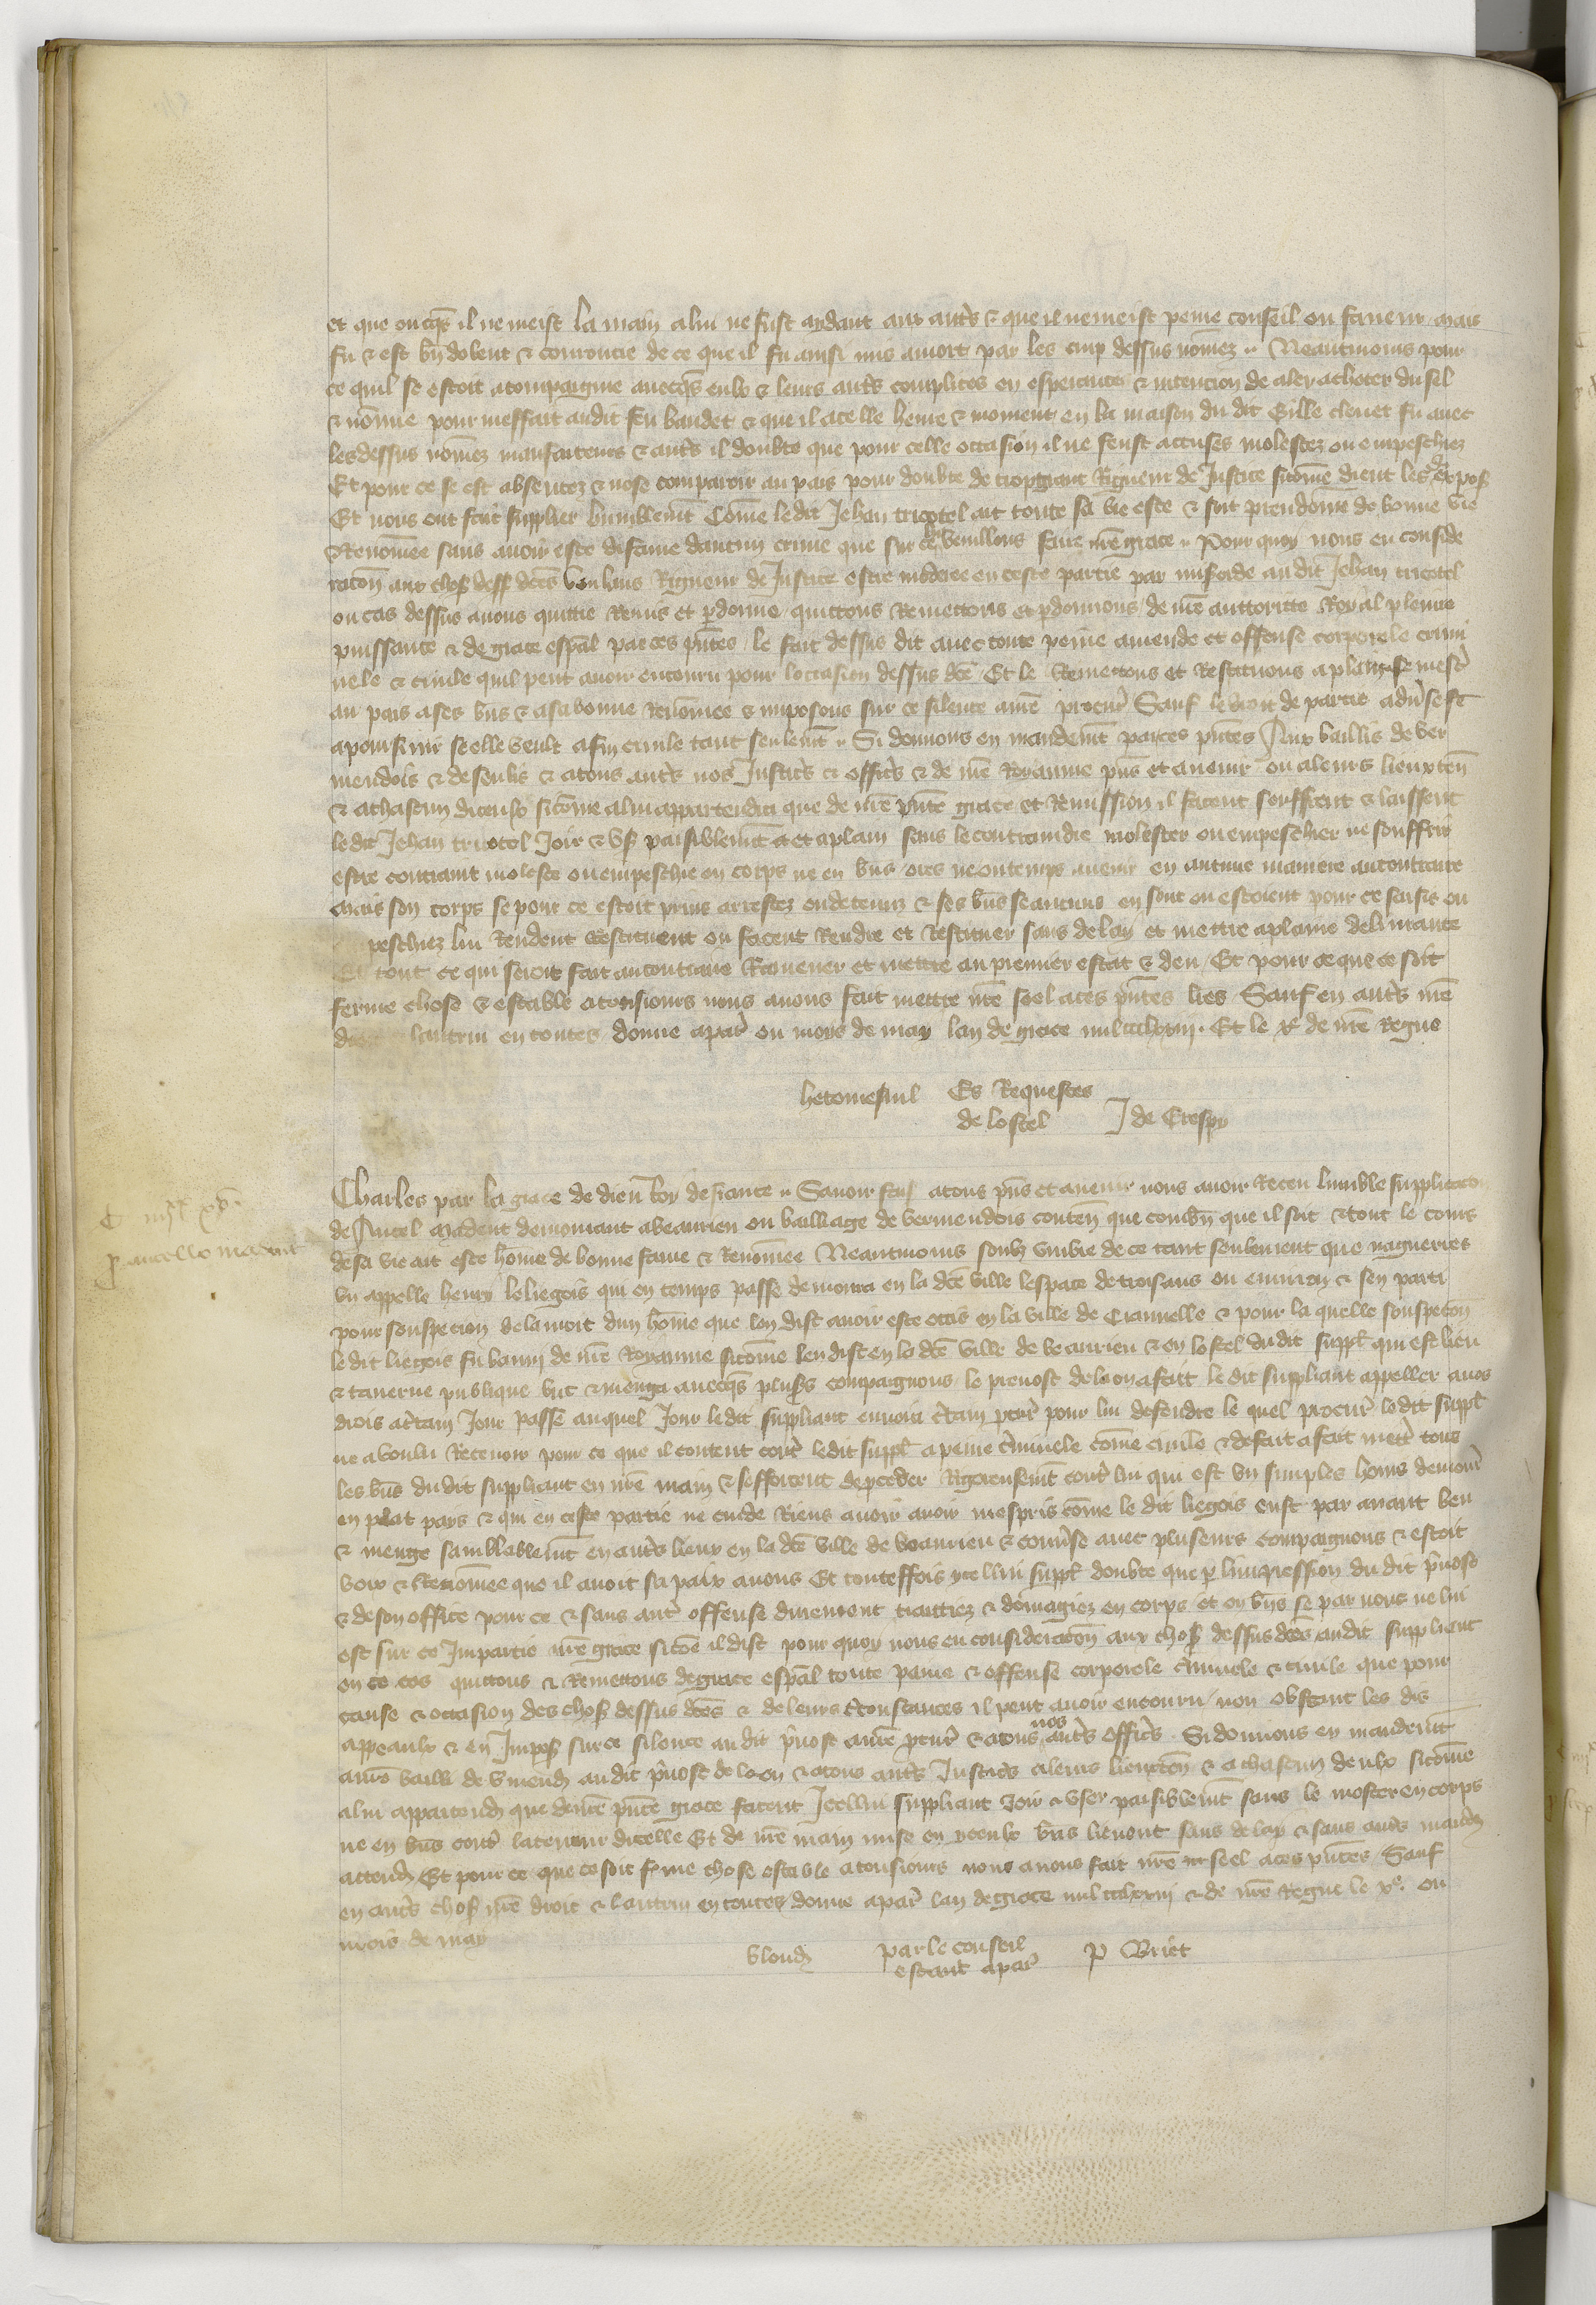 et que oncqs il ne meist la main a lui ne fust aydant aux autrs & que il ne meist peine conseil ou faveur mais
fu & est bn dolent & courroucie de ce que il fu ainsi mis a mort par les cinq dessus nomez Neantmoins pour
ce quil se estoit acompaignie avecqs eulx & leurs autrs complices en esperance & intencion de aler acheter du sel
& nomie pour meffait au dit feu baudet & que il a celle heure & moment en la maison du dit Gille clenet fu avec
les dessus nomez maufaiteurs & autrs il doubte que pour celle occasion il ne feust accuses molestez ou empeschiez
Et pour ce se est absentez & nose comparoir au pais pour doubte de trop grant Rigueur de Justice sicome dient les expos
Et nous ont fait supplier humblemt Come le dit Jehan tricotel ait toute sa vie este & soit preudome de bonne vie
& Renomee sans avoir este diffame daucun crime que sur ce veuillons faire nre grace Pour quoy nous en conside
racon aux chos dess dces voulans Rigueur de Justice estre moderee en ceste partie par misicorde au dit Jehan tricotel
ou cas dessus avons quittie Remis et pdonne quittons Remettons et pdonnons de nre auttorite Royal plaine
puissance & de grace espal par ces pntes le fait dessus dit avec toute peine amende et offense corporele crimi
nele & civile quil peut avoir encouru pour loccasion dessus dce Et le Remettons et Restituons a plain
au pais a ses bns & a sa bonne Renomee & imposons sur ce silence a nre procur Sauf le droit de partie adverse
a poursuir se elle veult a fin civile tant seulemt Si donnons en mandemt par ces pntes Aux baillis de ver
mendois & de senlis & a tous autrs nos Justicrs & officrs & de nre Royaume pns et avenir ou a leurs lieuxten
& a chascun diceulx sicome a lui appartendra que de nre pnte grace et Remission il facent souffrent & laissent
le dit Jehan tricotel Joir & us paisiblemt et a plain sans le contraindre molester ou empeschier ne souffrir
estre contraint moleste ou empeschie en corps ne en bns ores ne ou temps avenir en aucune maniere au contraire
Mais son corps se pour ce estoit prins arrestez ou detenuz & ses bns se aucuns en sont ou estoient pour ce saisis ou
peschiez lui Rendent Restituent ou facent Rendre et Restituer sans delay et mettre a plaine delivrance
Et tout ce qui seroit fait au contraire Ramener et mettre au premier estat & deu Et pour ce que ce soit
ferme chose & estable a tousiours nous avons fait mettre nre seel a ces pntes lres Sauf en autrs nre
lautrui en toutes donne a par ou mois de may lan de grace mil ccclxxiij Et le xe de nre Regne
hetomesnil Es Requestes
de lostel J de Crespy
Charles par la grace de dieu Roy de france Savoir fais a tous pns et avenir nous avoir Receu lumble supplicacon
de Ancel Madent demourant a beaurieu ou bailliage de vermendois conten que combn que il soit & tout le cours
de sa vie ait este home de bonne fame & Renomee Neantmoins soubz umbre de ce tant seulement que nagueires
un appelle henry le liegois qui en temps passe demoura en la dce ville lespace de trois ans ou environ & sen parti
pour souspecion de la mort dun home que lon dist avoir este occis en la ville de Craunelle & pour la quelle souspecon
le dit liegois fu banny de nre Royaume sicome len dist en la dce ville de beaurieu & en lostel du dit suppl qui est lieu
& taverne publique but & menga avecqs plus compaignons le prevost de laon a fait le dit suppliant appeller a nos
drois a ctain Jour passe au quel Jour le dit suppliant envoia ctain pcur pour lui defendre le quel procur le dit suppl
ne a voulu Recevoir pour ce que il content contr le dit suppl a peine criminele come civile & de fait a fait mettr tous
les bns du dit suppliant en nre main & sefforcent de pceder Rigoreusemt contr lui qui est un simples homs demour
en plat pays & qui en ceste partie ne cuide Riens avoir avoir mespris come le dit liegois eust par avant beu
& mengie samblablemt en autrs lieux en la dce ville de beaurieu & converse avec pluseurs compaignons & estoit
voix & Renomee que il avoit sa paix a nous Et touteffois ycellui suppl doubte que p limpression du dit pvost
& de son office pour ce & sans autr offense durement traittiez & domagiez en corps et en bns se par nous ne lui
est sur ce Impartie nre grace sicoe il dist pour quoy nous en consideracon aux chos dessus dces au dit suppliant
ou ce cas quittons & Remettons de grace espal toute paine & offense corporele criminele & civile que pour
cause & occasion des chos dessus dces & de leurs circonstances il peut avoir encouru non obstant les dis
appeaulx & en Impos sur ce silence au dit pvost a nre pcur & a tous nos autrs officrs Si donnons en mandemt
au bailli de vmend au dit pvost de laon & a tous autrs Justicrs a leurs lieuxten & a chascun deulx sicome
a lui appartend que de nre pnte grace facent Icellui suppliant Joir & user paisiblemt sans le molester en corps
ne en bns contr la teneur dicelle Et de nre main mise en yceulx bns lievent sans delay & sans autr mand
attend Et pour ce que ce soit fme chose estable a tousiours nous avons fait mre nre seel a ces pntes Sauf
en autrs chos nre droit & lautrui en toutes donne a par lan de grace mil ccclxxiij & de nre Regne le xe ou
mois de may
blond par le conseil P Briet
estant a par
p ancello madent